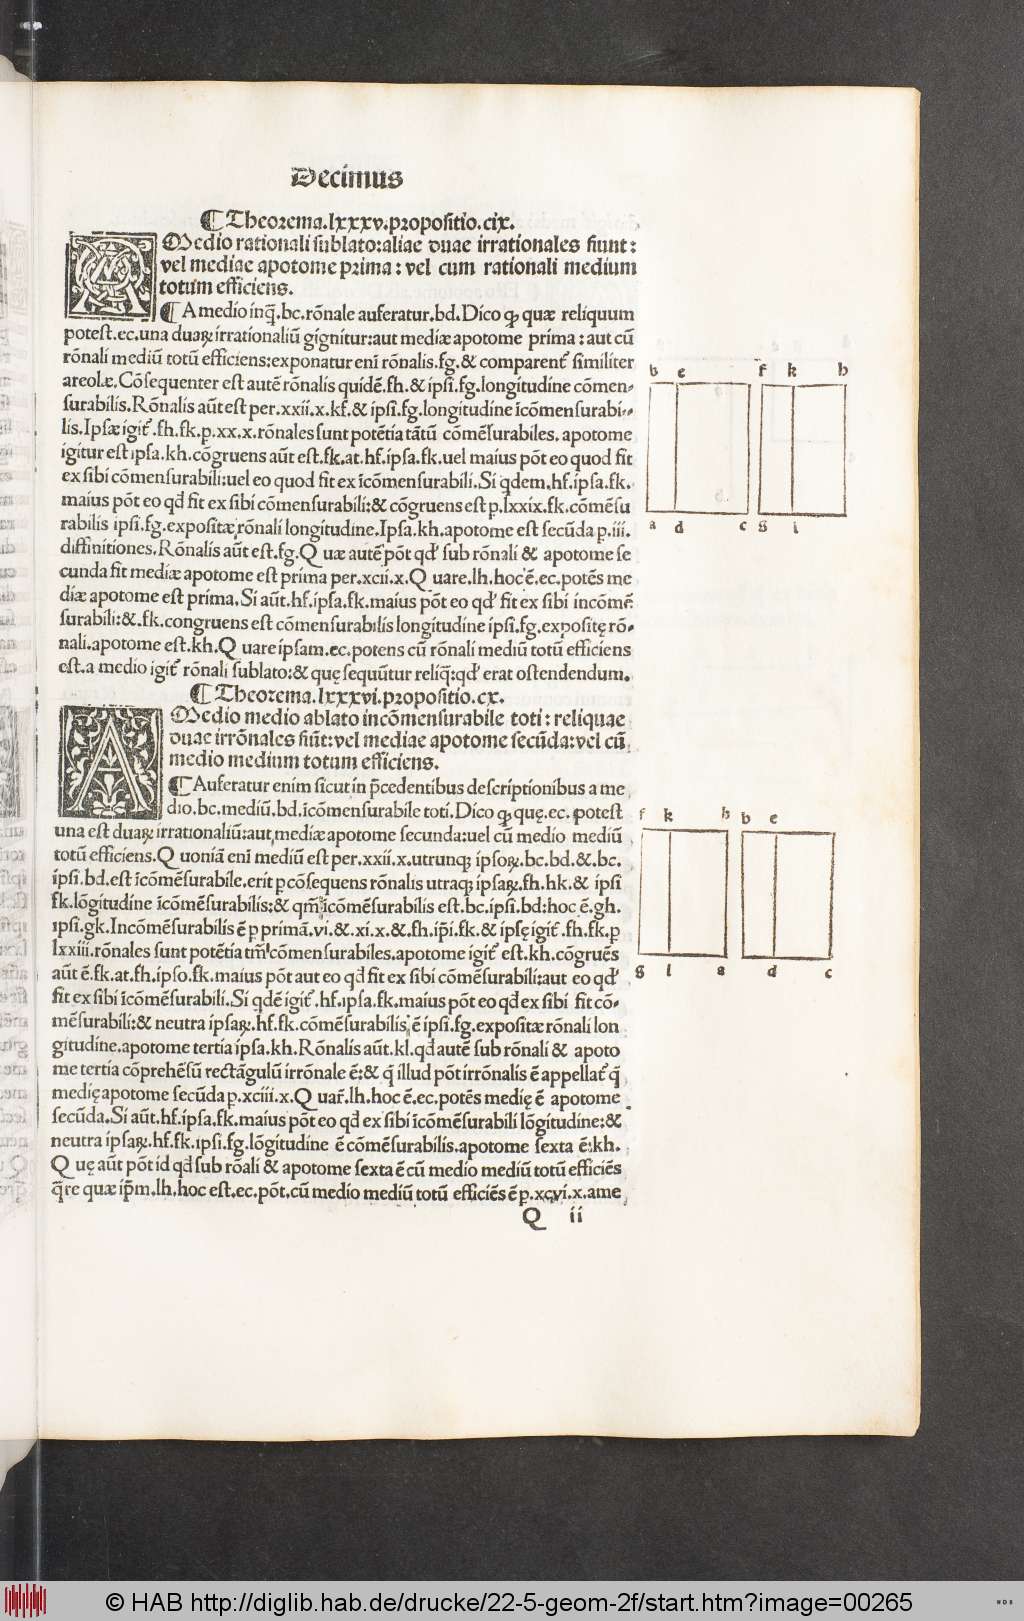 Decimus
¶ Theorema.lxxxv.propositio.cix.
Medio rationali sublato:aliae duae irrationales fiunt:
vel mediae apotome prima: vel cum rationali medium
totum efficiens.
¶ A medio inq̃.bc.rõnale auferatur.bd.Dico ꝙ quæ reliquum
potest.ec.una duaꝝ irrationaliũ gignitur:aut mediæ apotome prima:aut cũ
rõnali mediũ totũ efficiens:exponatur eni rõnalis.fg.& comparent᷒ similiter
areolæ.Cõsequenter est autẽ rõnalis quidẽ.fh.& ipsi.fg.longitudine cõmen-
surabilis.Rõnalis aũt est per.xxii.x.kf.& ipsi.fg.longitudine icõmensurabi-
lis.Ipsæ igit᷒.fh.fk.p.xx.x.rõnales sunt potẽtia tãtũ cõmẽsurabiles.apotome
igitur est ipsa.kh.cõgruens aũt est.fk.at.hf.ipsa.fk.uel maius põt eo quod fit
ex sibi cõmensurabili:uel eo quod fit ex icõmensurabili.Si qdem.hf.ipsa.fk.
maius põt eo qd fit ex sibi cõmensurabili:& cõgruens est p.lxxix.fk.cõmẽsu
rabilis ipsi.fg.expositæ rõnali longitudine.Ipsa.kh.apotome est secũda p.iii.
diffinitiones.Rõnalis aũt est.fg.Q uæ autẽ põt qd sub rõnali & apotome se
cunda fit mediæ apotome est prima per.xcii.x.Q uare.lh.hoc ẽ.ec.potẽs me
diæ apotome est prima.Si aũt.hf.ipsa.fk.maius põt eo qd fit ex sibi incõmẽ
surabili:&.fk.congruens est cõmensurabilis longitudine ipsi.fg.expositę rõ-
nali.apotome est.kh.Q uare ipsam.ec.potens cũ rõnali mediũ totũ efficiens
est.a medio igit᷒ rõnali sublato:& quę sequũtur reliq̃:qd erat ostendendum.
¶ Theorema.lxxxvi.propositio.cx.
Medio medio ablato incõmensurabile toti: reliquae
duae irrõnales fiũt:vel mediae apotome secũda:vel cũ
medio medium totum efficiens.
¶ Auferatur enim sicut in p̃cedentibus descriptionibus a me
dio.bc.mediũ.bd.icõmensurabile toti.Dico ꝙ quę.ec. potest
una est duaꝝ irrationaliũ:aut mediæ apotome secunda:uel cũ medio mediũ
totũ efficiens.Q uoniã eni mediũ est per.xxii.x.utrunq; ipsoꝝ.bc.bd.&.bc.
ipsi.bd.est icõmẽsurabile.erit p cõsequens rõnalis utraq; ipsaꝝ.fh.hk.& ipsi
fk.lõgitudine icõmẽsurabilis:& qm̃ icõmẽsurabilis est.bc.ipsi.bd:hoc ẽ.gh.
ipsi.gk.Incõmẽsurabilis ẽ p primã.vi.& xi.x.&.fh.ip̃i.fk.& ipsę igit᷒.fh.fk.p
lxxiii.rõnales sunt potẽtia tm̃ cõmensurabiles.apotome igit᷒ est.kh.cõgruẽs
aũt ẽ.fk.at.fh.ipso.fk.maius põt aut eo qd fit ex sibi cõmẽsurabili:aut eo qd
fit ex sibi icõmẽsurabili.Si qdẽ igit᷒.hf.ipsa.fk.maius põt eo qd ex sibi fit cõ-
mẽsurabili:& neutra ipsaꝝ.hf.fk.cõmẽsurabilis ẽ ipsi.fg.expositæ rõnali lon
gitudine.apotome tertia ipsa.kh.Rõnalis aũt.kl.qd autẽ sub rõnali & apoto
me tertia cõprehẽsũ rectãgulũ irrõnale ẽ:& q̃ illud põt irrõnalis ẽ appellat᷒ q̃
medię apotome secũda p.xciii.x.Q uar̃.lh.hoc ẽ.ec.potẽs medię ẽ apotome
secũda.Si aũt.hf.ipsa.fk.maius põt eo qd ex sibi icõmẽsurabili lõgitudine:&
neutra ipsaꝝ.hf.fk.ipsi.fg.lõgitudine ẽ cõmẽsurabilis.apotome sexta ẽ:kh.
Q uę aũt põt id qd sub rõali & apotome sexta ẽ cũ medio mediũ totũ efficiẽs
q̃re quæ ip̃m.lh.hoc est.ec.põt.cũ medio mediũ totũ efficiẽs ẽ p.xcvi.x.a me
Q ii
b e f k h
a d c g l
f k h b e
g l a d c
© HAB http://diglib.hab.de/drucke/22-5-geom-2f/start.htm?image=00265